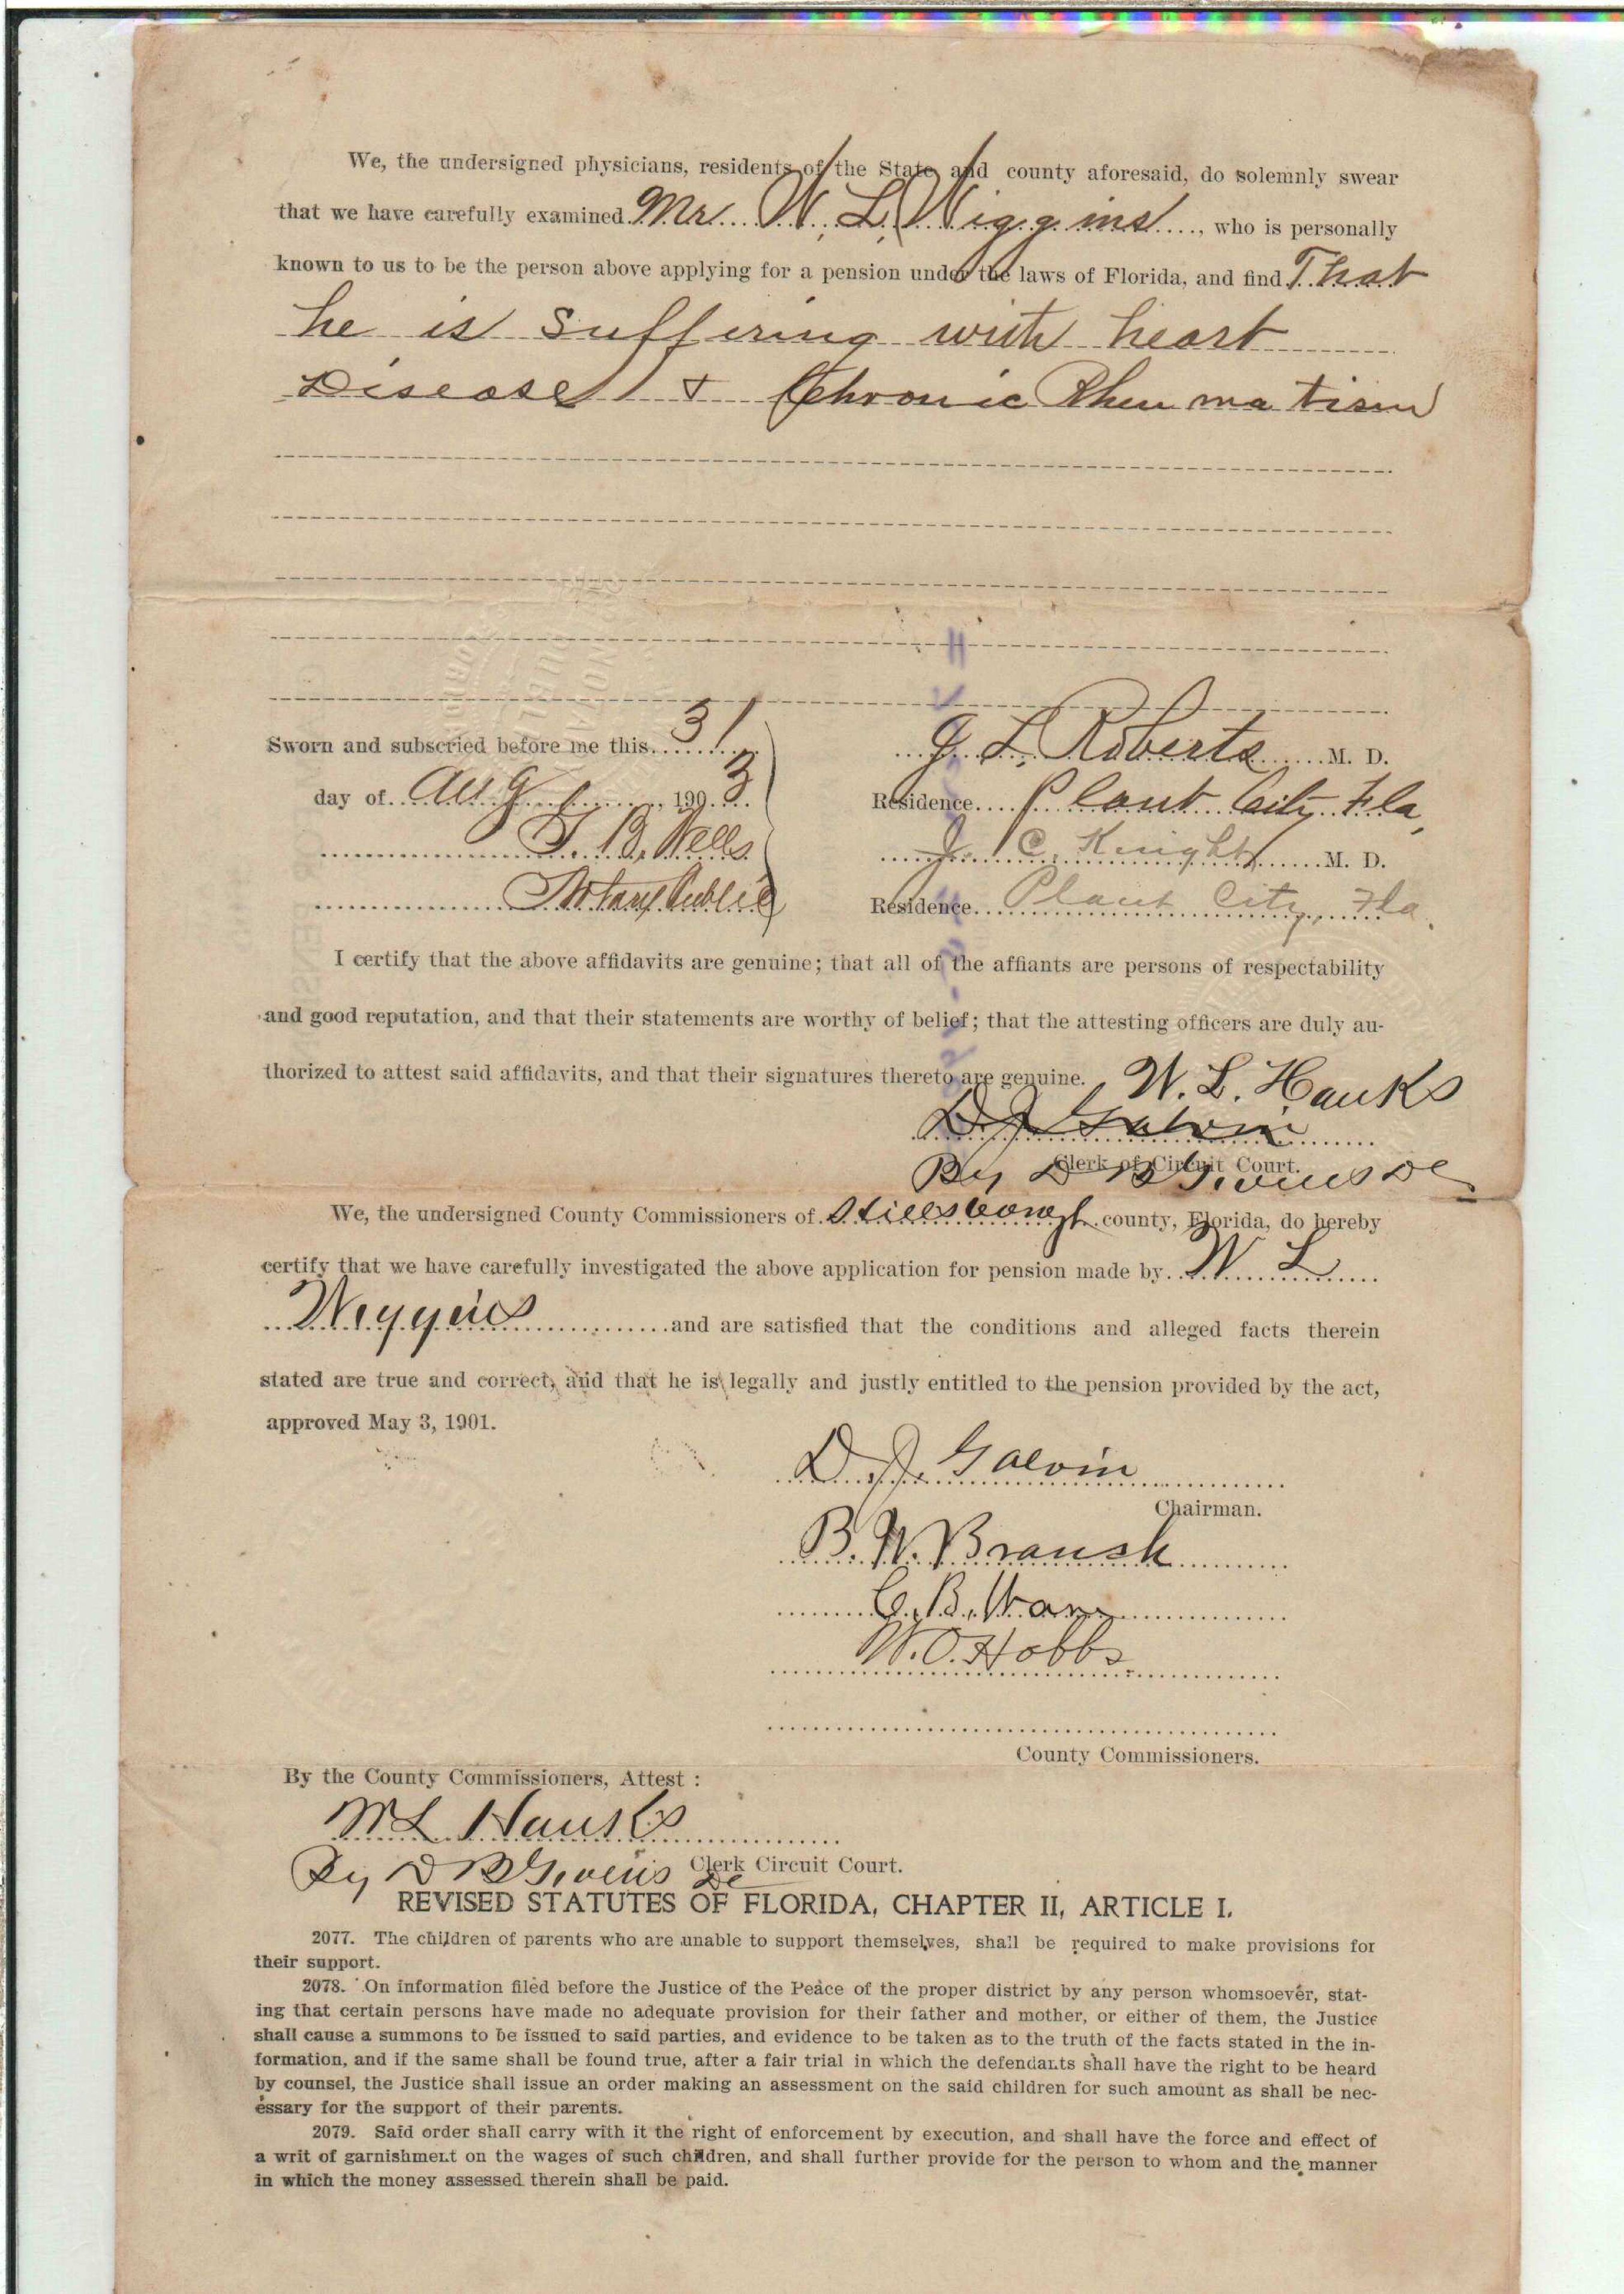 We, the undersigned physicians, residents of the State and county aforesaid, do solemnly swear
that we have carefully examined Mr W. L. Wiggins, who is personally
known to us to be the person above applying for a pension under the laws of Florida, and find That
he is suffering with heart
Disease & Chronic Rheumatism
Sworn and subscried before me this 31
day of Aug, 1903
J. L. Roberts M. D.
Residence Plant City Fla,
B. Wells
Notary Public
J. C. Knight M. D.
Residence Plant City, Fla.
I certify that the above affidavits are genuine; that all of the affiants are persons of respectability
and good reputation, and that their statements are worthy of belief; that the attesting officers are duly au-
thorized to attest said affidavits, and that their signatures thereto are genuine. W. L. Hanks
D J Galvin
Clerk of Circuit Court.
By D B Givens DC
We, the undersigned County Commissioners of Hillsborough county, Florida, do hereby
certify that we have carefully investigated the above application for pension made by W L
Wiggins and are satisfied that the conditions and alleged facts therein
stated are true and correct, and that he is legally and justly entitled to the pension provided by the act,
approved May 3, 1901.
D. J. Galvin
Chairman.
B. W. Branch
C. B.
W. O. Hobbs
County Commissioners.
By the County Commissioners, Attest :
W L Hanks
Clerk Circuit Court.
By D B Givens DC
REVISED STATUTES OF FLORIDA, CHAPTER II, ARTICLE I.
2077. The children of parents who are unable to support themselves, shall be required to make provisions for
their support.
2078. On information filed before the Justice of the Peace of the proper district by any person whomsoever, stat-
ing that certain persons have made no adequate provision for their father and mother, or either of them, the Justice
shall cause a summons to be issued to said parties, and evidence to be taken as to the truth of the facts stated in the in-
formation, and if the same shall be found true, after a fair trial in which the defendants shall have the right to be heard
by counsel, the Justice shall issue an order making an assessment on the said children for such amount as shall be nec-
essary for the support of their parents.
2079. Said order shall carry with it the right of enforcement by execution, and shall have the force and effect of
a writ of garnishment on the wages of such children, and shall further provide for the person to whom and the manner
in which the money assessed therein shall be paid.